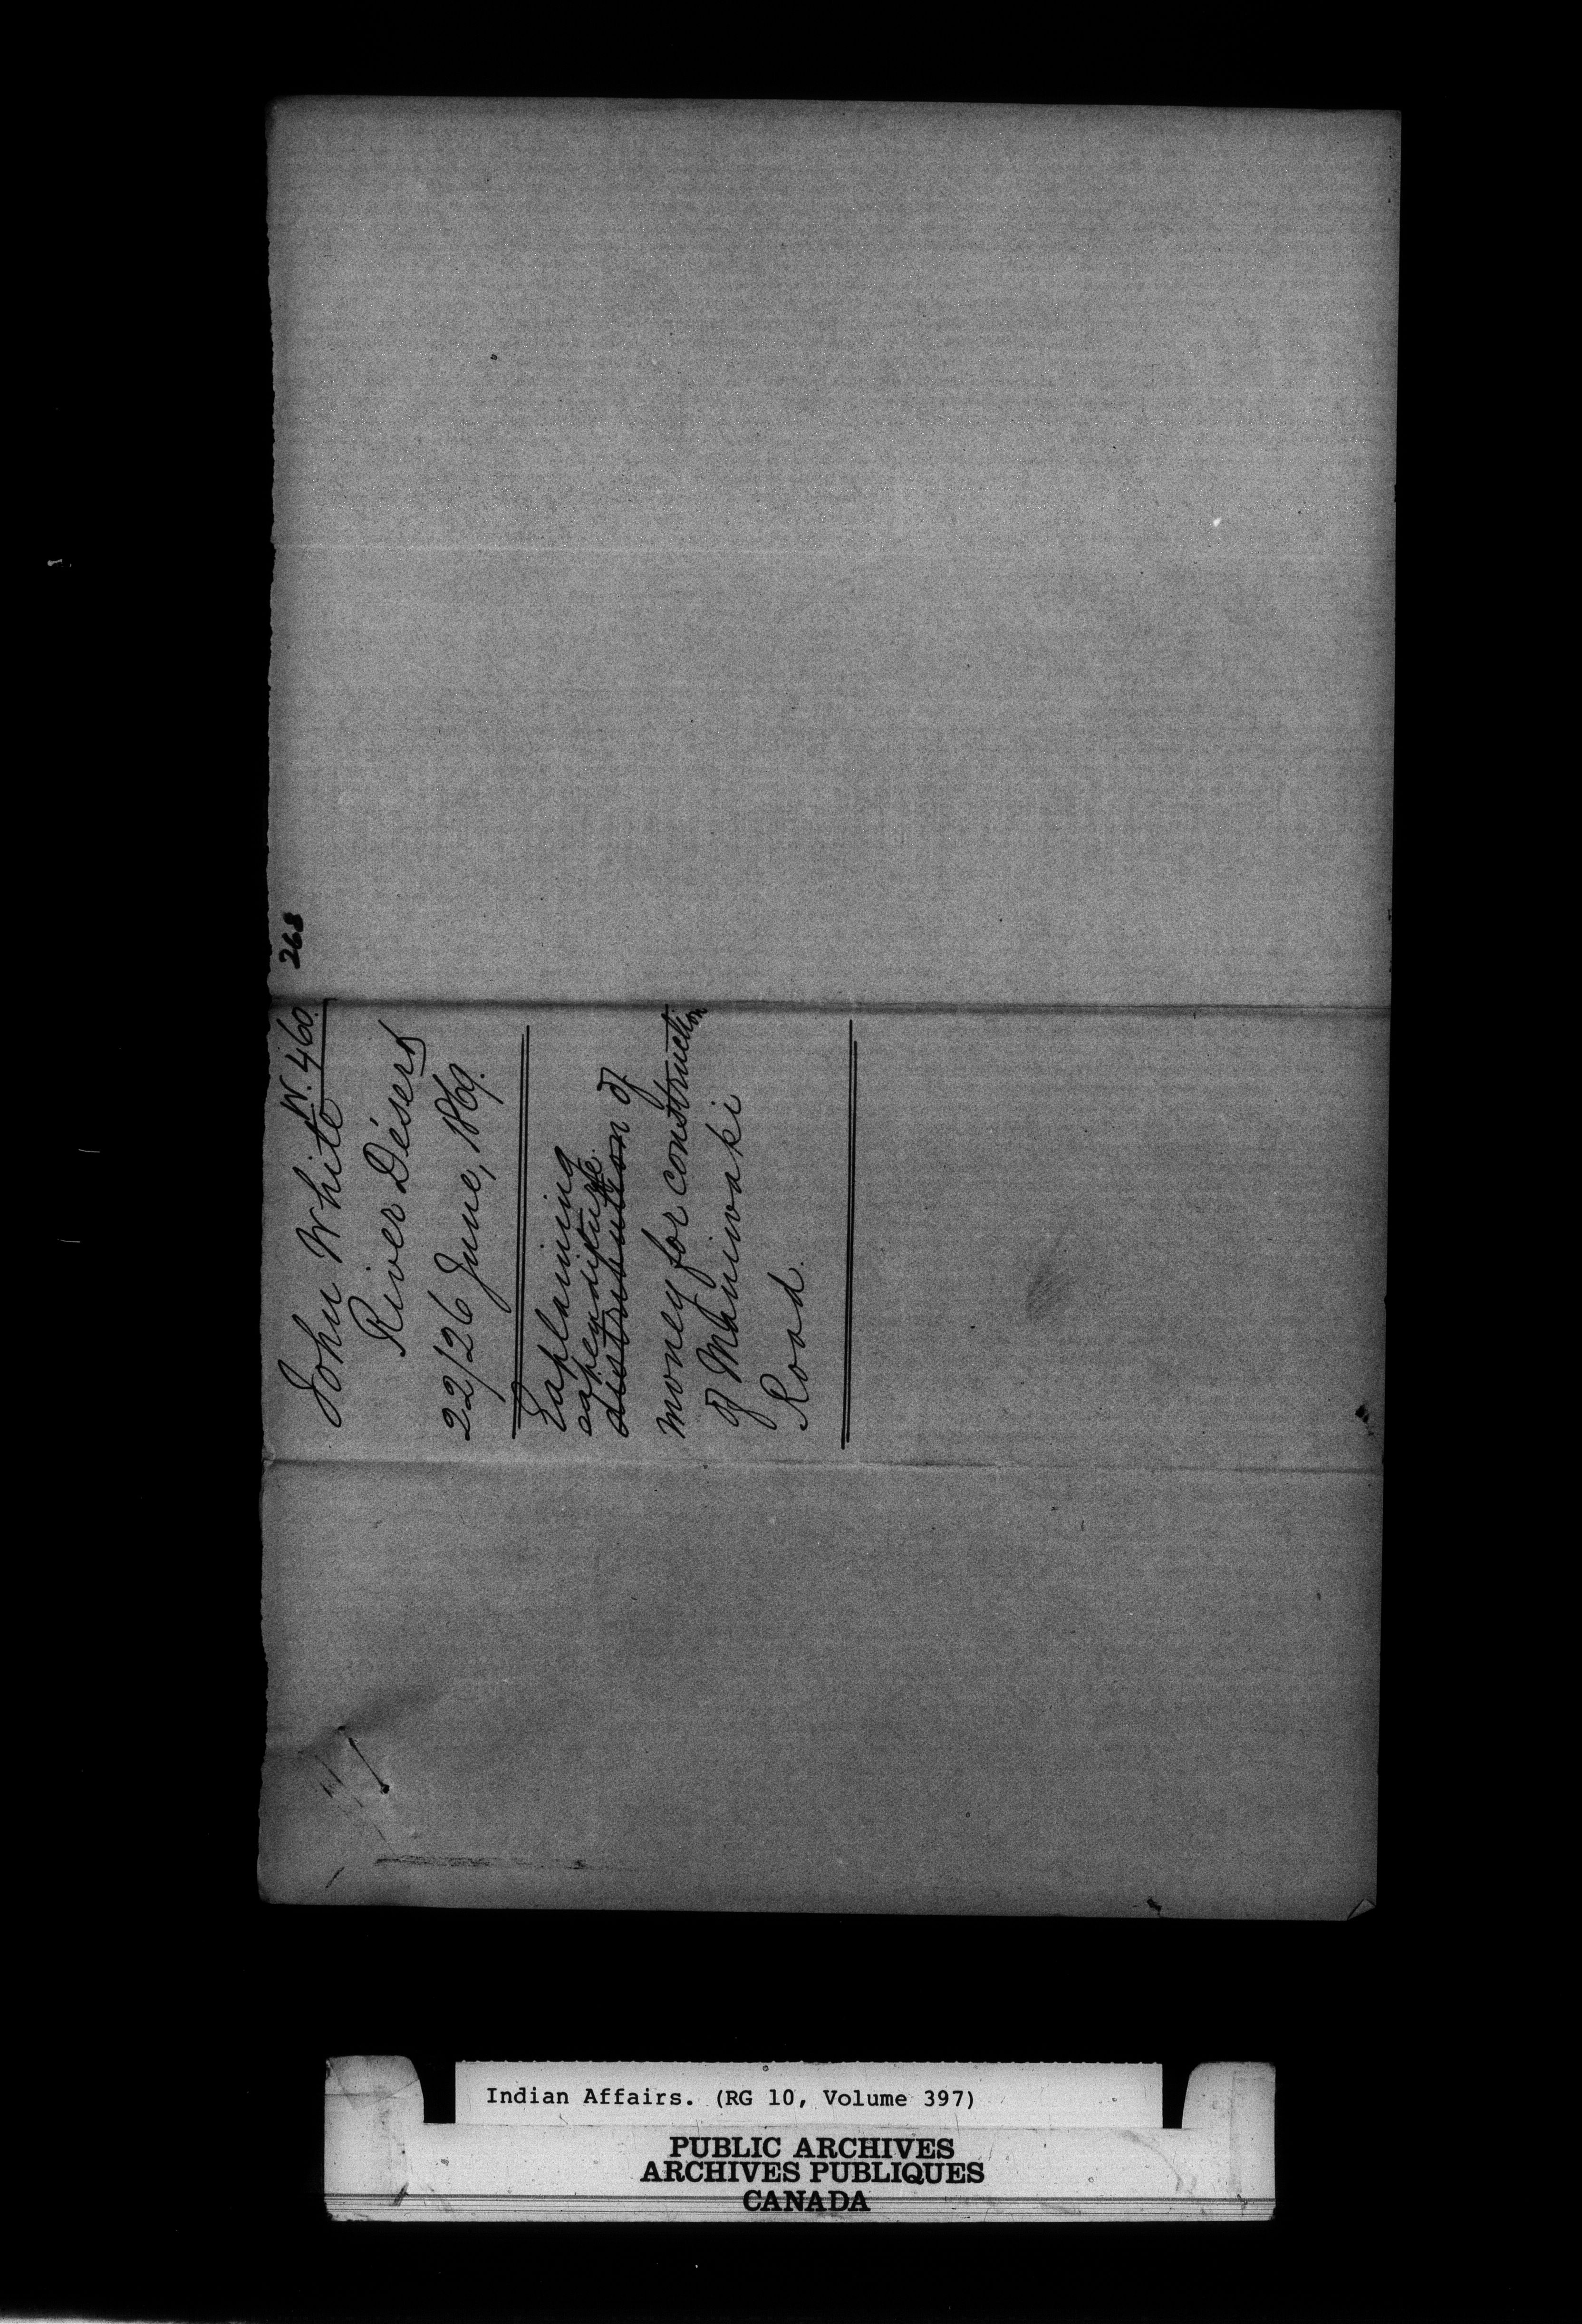 268
W. 460.
John White
River Désert
22/26 June, 1869.
Explaining
expenditure
distribution of
money for construction
of Maniwaki
Road.
Indian Affairs. (RG 10, Volume 397)
PUBLIC ARCHIVES
ARCHIVES PUBLIQUES
CANADA